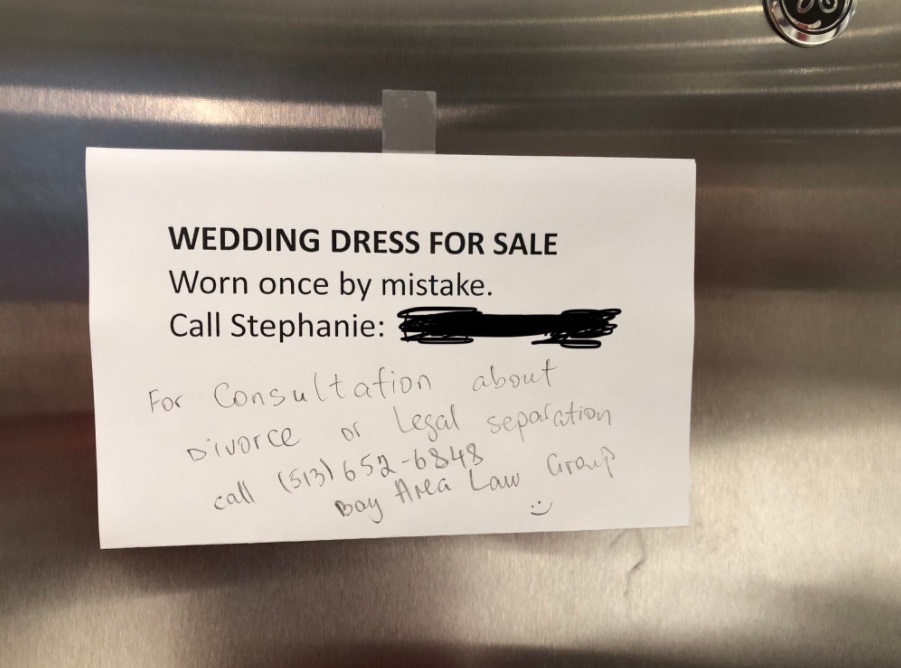 WEDDING DRESS FOR SALE
Worn once by mistake.
Call Stephanie:
For Consultation about
Divorce or Legal separation
call (513) 652-6848
Bay Area Law Group
:)